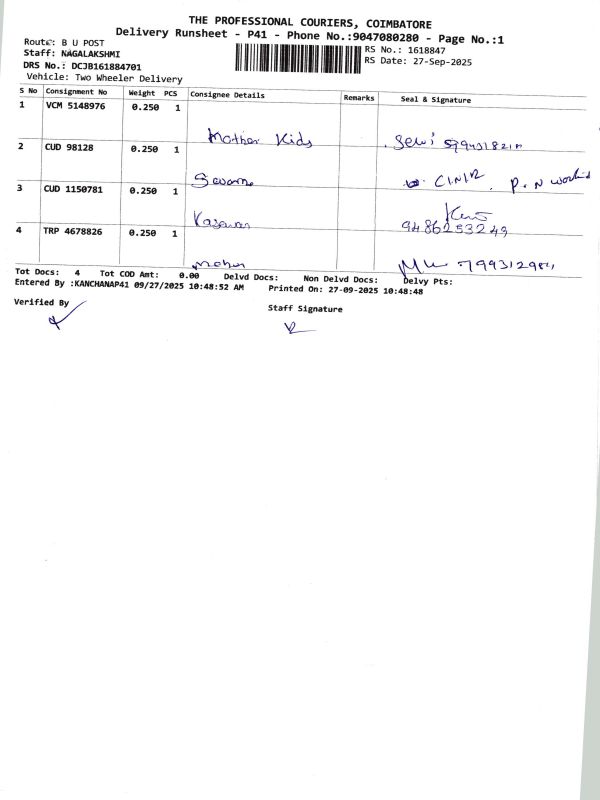 THE PROFESSIONAL COURIERS, COIMBATORE
Delivery Runsheet - P41 - Phone No.:9047080280 - Page No.:1
Route: B U POST
Staff: NAGALAKSHMI
DRS No.: DCJB161884701
Vehicle: Two Wheeler Delivery
RS No.: 1618847
RS Date: 27-Sep-2025
S No Consignment No Weight PCS Consignee Details Remarks Seal & Signature
1 VCM 5148976 0.250 1
Mother Kids
2 CUD 98128 0.250 1
3 CUD 1150781 0.250 1
9486253249
4 TRP 4678826 0.250 1
Tot Docs: 4 Tot COD Amt: 0.00 Delvd Docs: Non Delvd Docs: Delvy Pts:
Entered By :KANCHANAP41 09/27/2025 10:48:52 AM Printed On: 27-09-2025 10:48:48
Verified By
Staff Signature